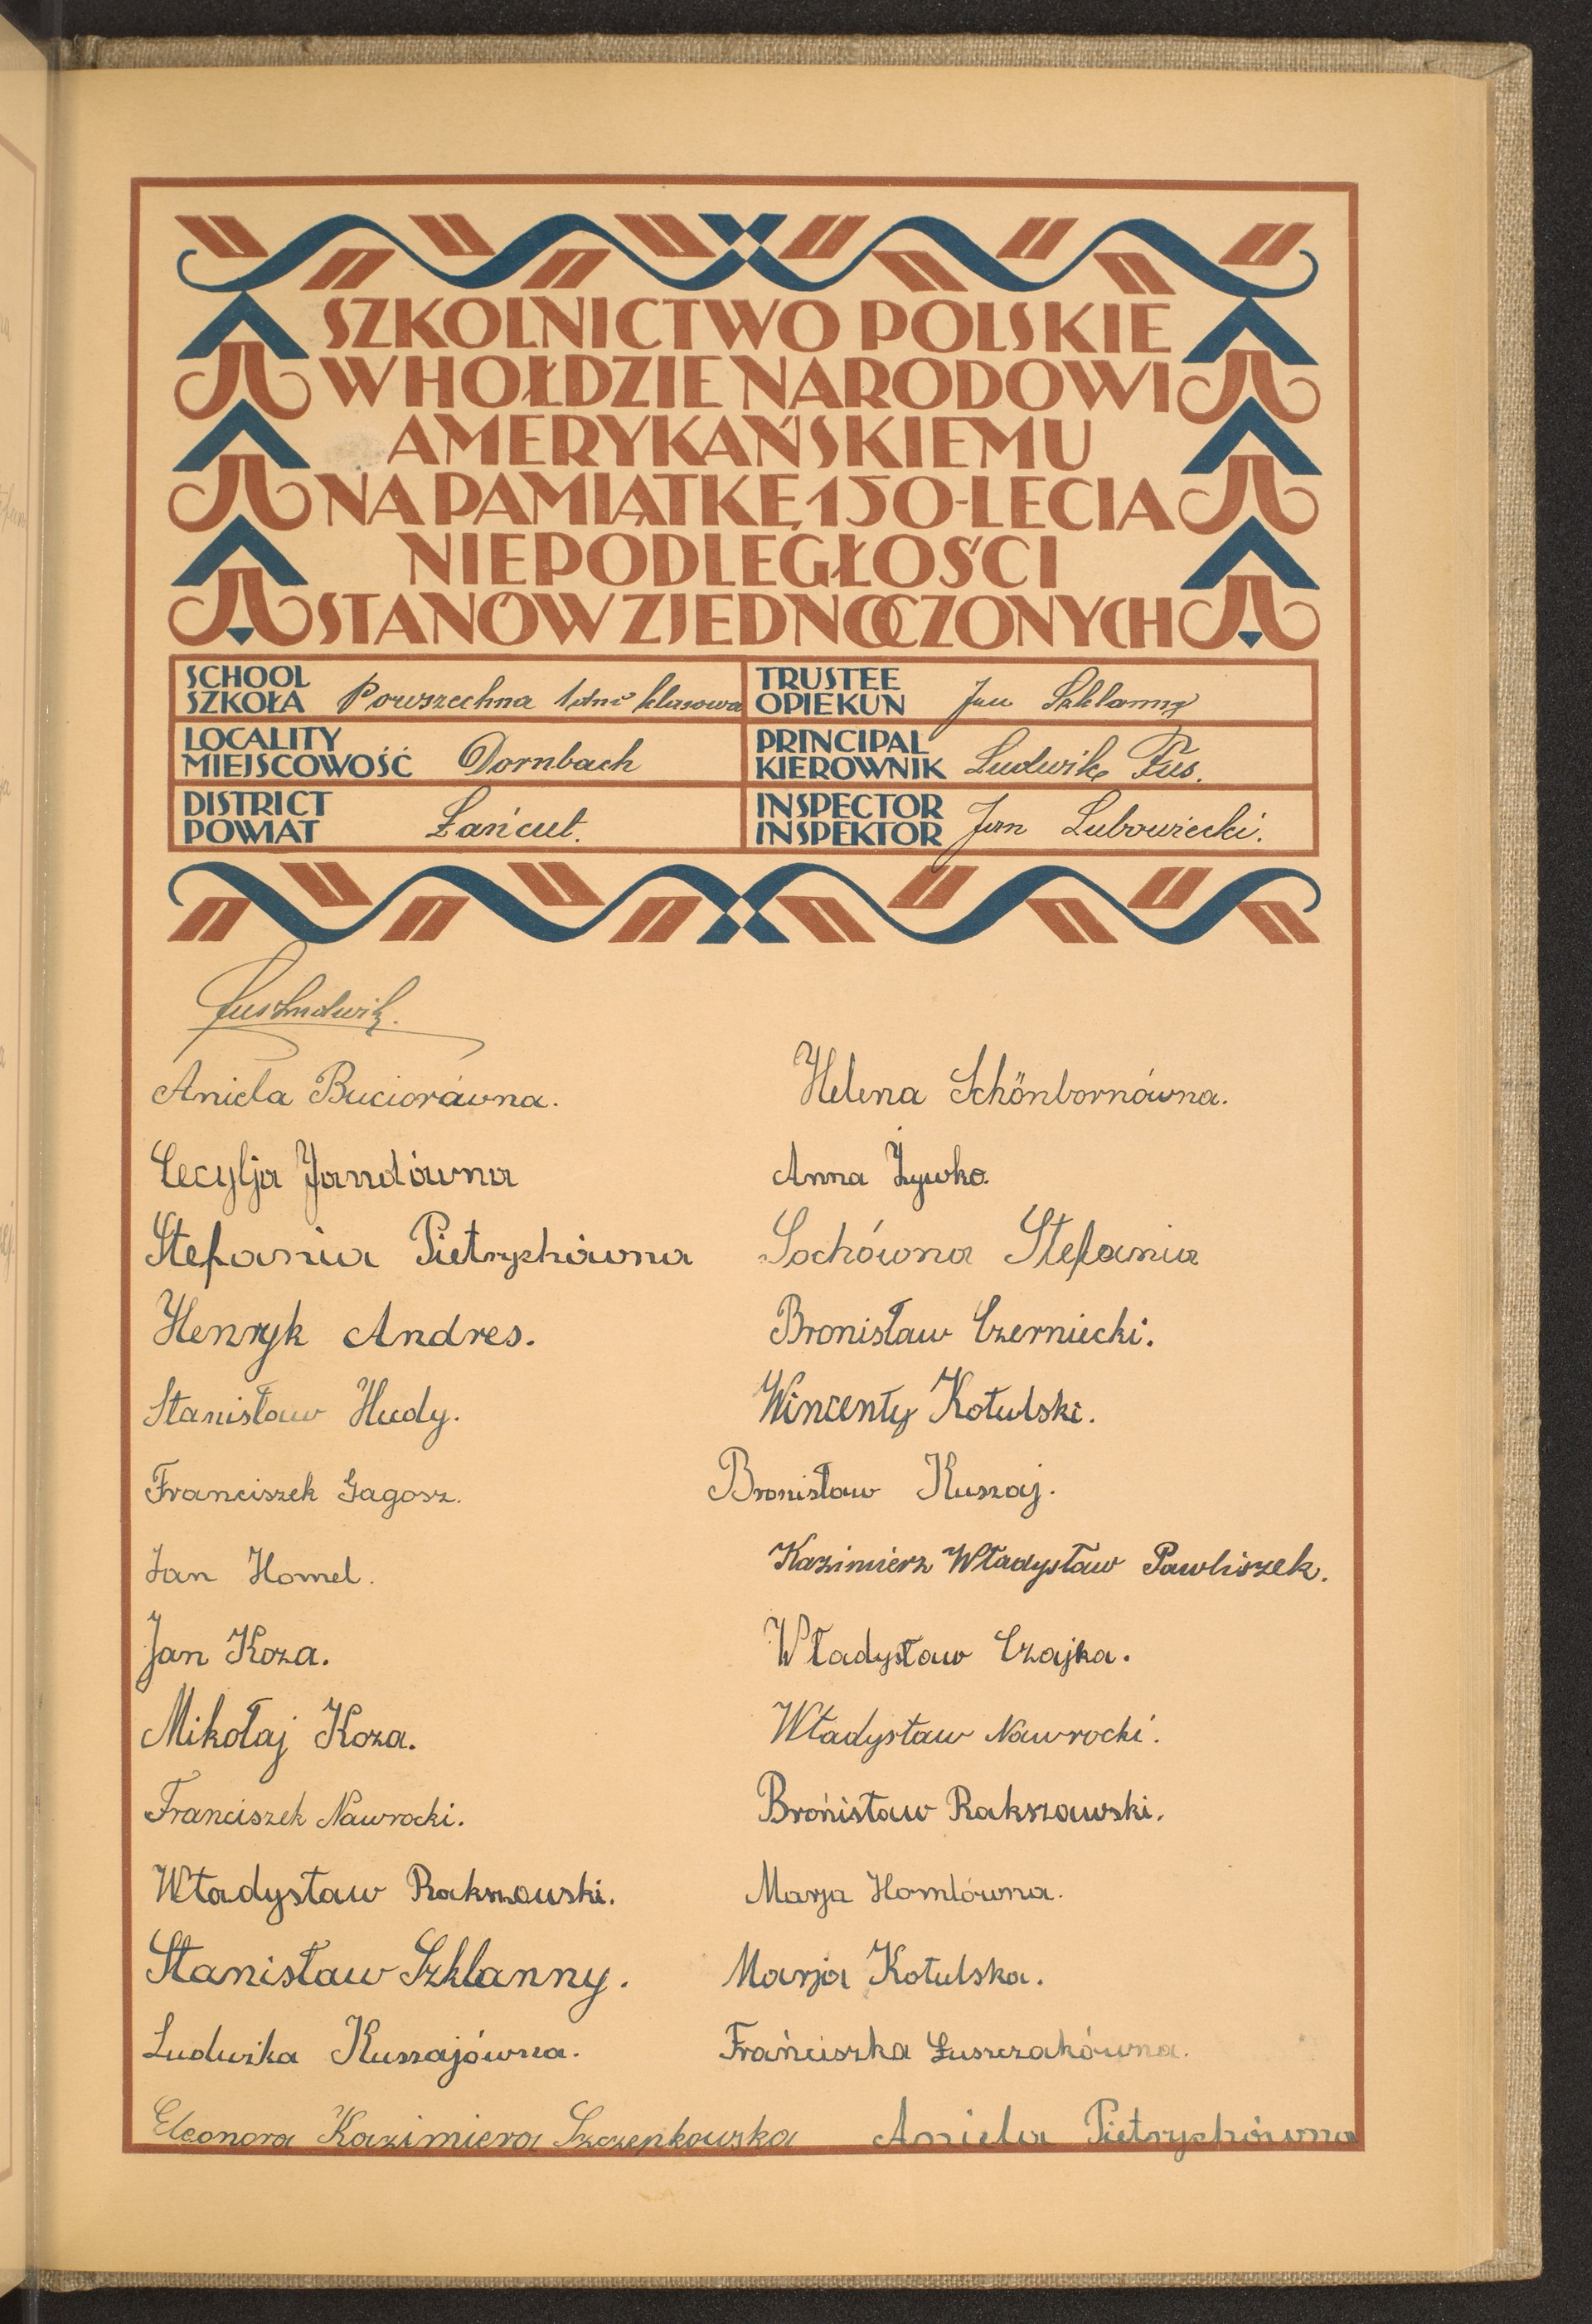 SZKOLNICTWO POLSKIE
W HOŁDZIE NARODOWI
AMERYKAŃSKIEMU
NA PAMIĄTKĘ 150-LECIA
NIEPODLEGŁOŚCI
STANÓW ZJEDNOCZONYCH
SCHOOL
SZKOŁA Powszechna klasowa
TRUSTEE
OPIEKUN Jan Szklanny
LOCALITY
MIEJSCOWOŚĆ Dornbach
PRINCIPAL
KIEROWNIK Ludwik Fus.
DISTRICT
POWIAT Łańcut.
INSPECTOR
INSPEKTOR Jan Lubowiecki.
Fus Ludwik.
Aniela Buciorówna.
Helena Schönbornówna.
Cecylja Jandówna
Anna Żywko.
Stefania Pietrychówna
Sochówna Stefania
Henryk Andres.
Bronisław Czerniecki.
Stanisław Hudy.
Wincenty Kotulski.
Franciszek Gagosz.
Bronisław Kuszaj.
Jan Homel.
Kazimierz Władysław Pawliszek.
Jan Koza.
Władysław Czajka.
Mikołaj Koza.
Władysław Nawrocki.
Franciszek Nawrocki.
Brónisław Rakszawski.
Władysław Rakszawski.
Marja Homlówna.
Stanisław Szklanny.
Marja Kotulska.
Ludwika Kuszajówna.
Frańciszka Łuszczakówna.
Eleonora Kazimiera Szczepkowska
Aniela Pietrychówna